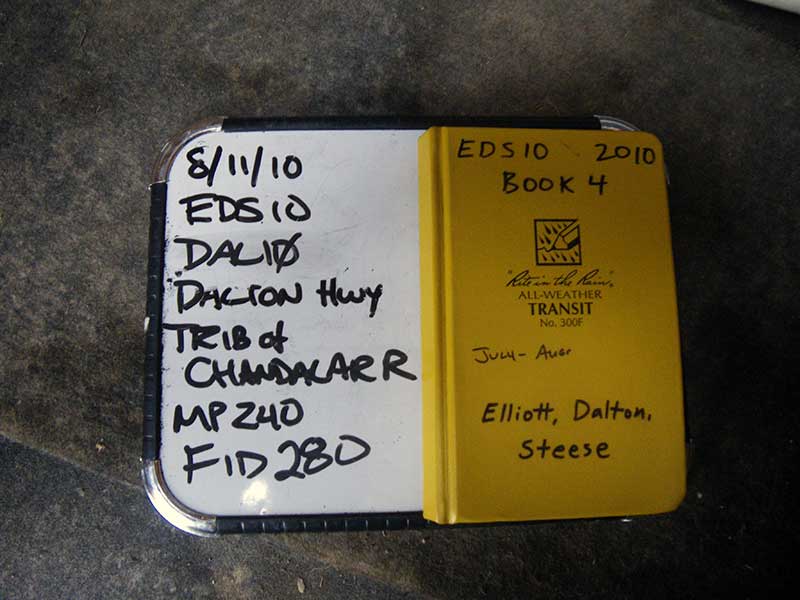 8/11/10
EDS10
DAL10
DALTON HWY
TRIB of
CHANDALAR R
MP 240
FID 280
EDS10 2010
BOOK 4
"Rite in the Rain"®
ALL-WEATHER
TRANSIT
No. 300F
JULY - AUG
Elliott, Dalton,
Steese